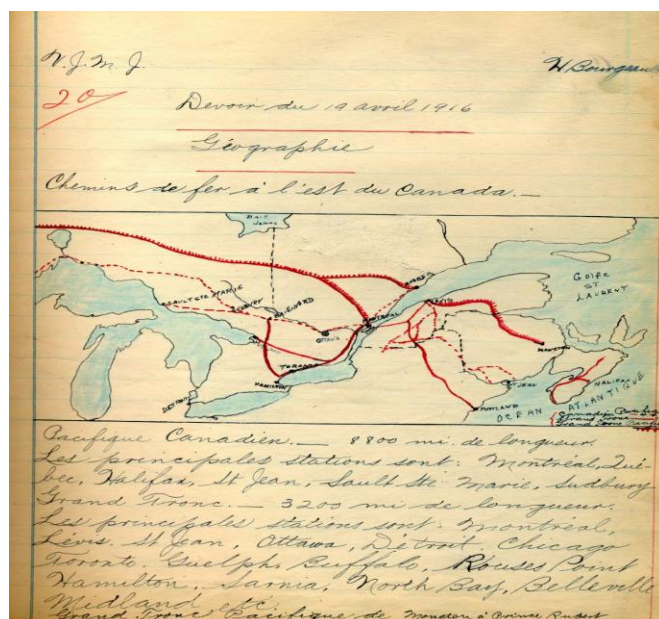 V. J. M. J.
H Bourgeau
20/
Devoir du 19 avril 1916
Géographie
Chemins de fer à l'est du Canada.—
BAIE JAMES
SAULT STE MARIE
SUDBURY
OTTAWA
MONTREAL
QUEBEC
LEVIS
GOLFE
ST
LAURENT
TORONTO
HAMILTON
DETROIT
ST JEAN
HALIFAX
PORTLAND
OCEAN ATLANTIQUE
Canadien Pacifique
Grand Tronc
Grand Tronc Pacifique
Pacifique Canadien.— 8800 mi de longueur.
Les principales stations sont: Montréal, Qué-
bec, Halifax, St Jean, Sault Ste Marie, Sudbury
Grand Tronc.— 3200 mi de longueur.
Les principales stations sont: Montréal,
Lévis, St Jean, Ottawa, Détroit, Chicago
Toronto, Guelph, Buffalo, Rouses Point
Hamilton, Sarnia, North Bay, Belleville
Midland etc.
Grand Tronc Pacifique de Moncton à Prince Rupert